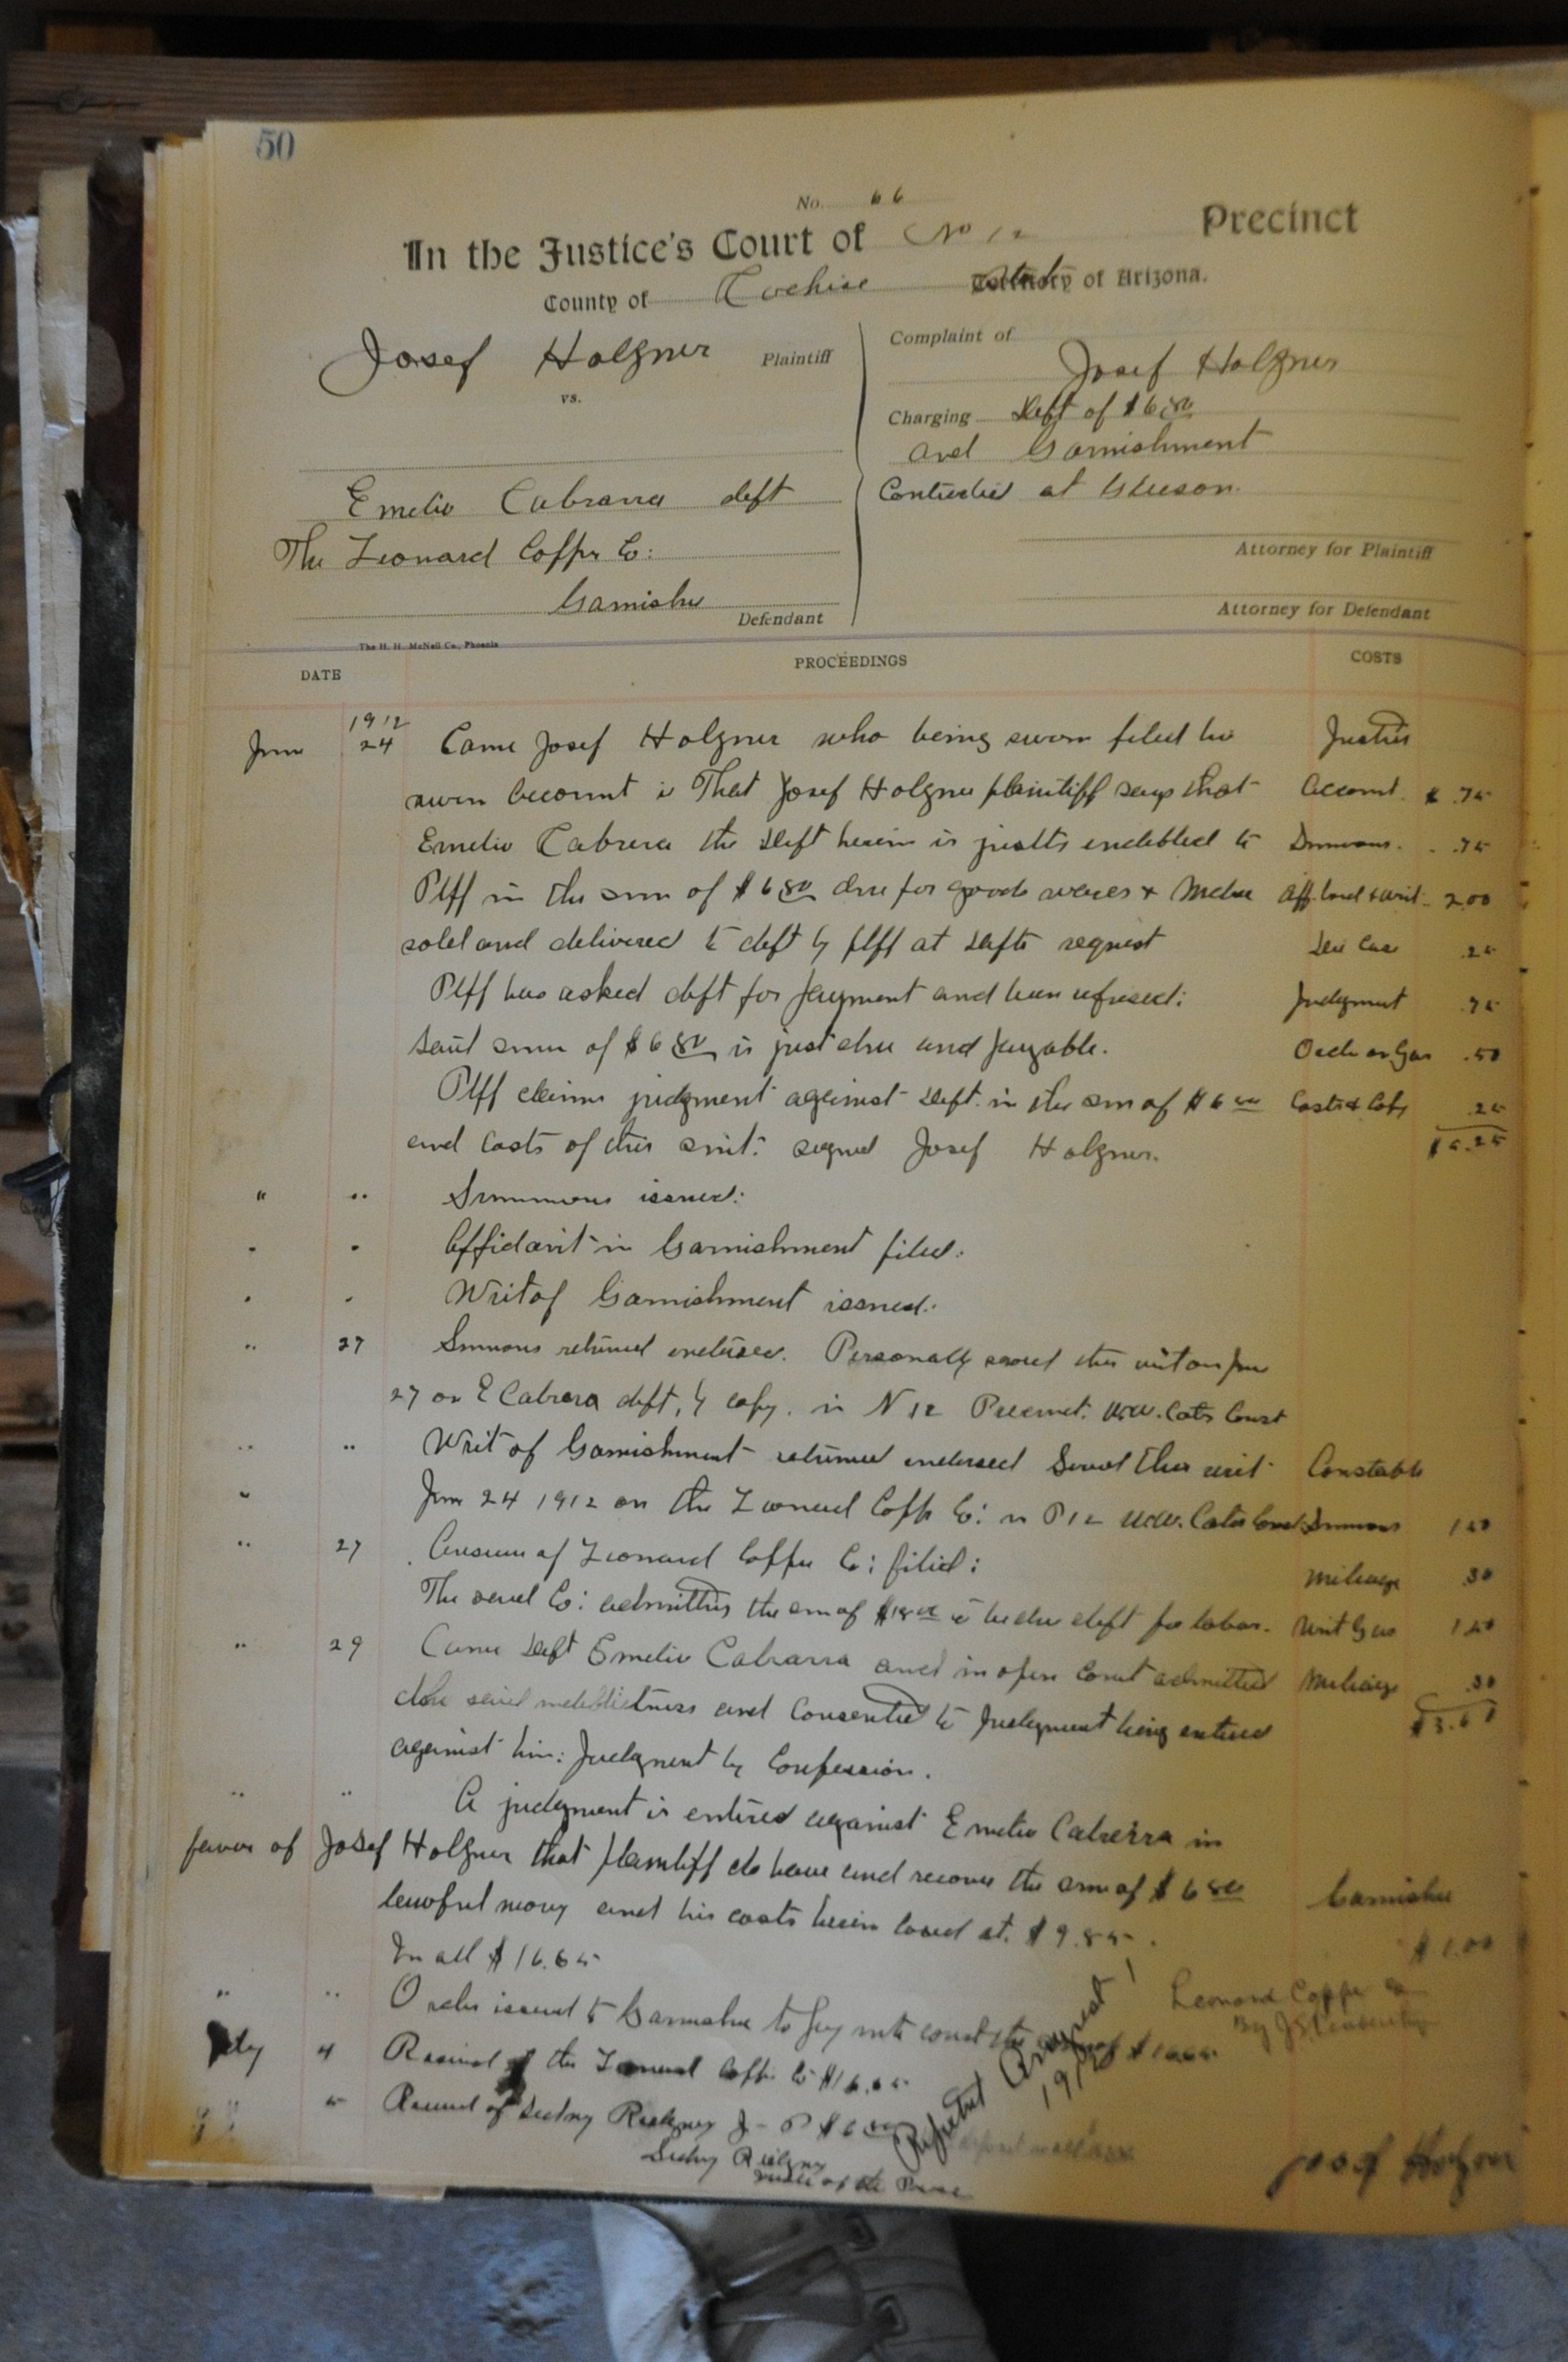 50
No. 66
In the Justice's Court of No 12 Precinct
County of Cochise State of Arizona.
Josef Holzner Plaintiff
vs.
Emelio Cabrarra deft
The Leonard Copper Co:
Garnishee
Defendant
Complaint of
Josef Holzner
Charging Debt of $6 80
and Garnishment
Contracted at Gleeson.
Attorney for Plaintiff
Attorney for Defendant
The H. H. McNeil Co., Phoenix
DATE PROCEEDINGS COSTS
1912
June 24 Came Josef Holzner who being sworn filed his Justice
sworn account is That Josef Holzner plaintiff says that Account. $ .75
Emelio Cabrera the Deft herein is justly endebted to Summons. .75
Plff in the sum of $6 80 due for goods wares & Mdse Aff. bond & writ 2.00
sold and delivered to deft by plff at Defts request .25
Plff has asked deft for payment and been refused: Judgment .75
said sum of $6 80 is just due and payable. Order on Gar .50
Plff claims judgment against Deft. in the sum of $6 80 .25
and costs of this suit: signed Josef Holzner. $5.25
" " Summons issued:
" " Affidavit in Garnishment filed:
" " Writ of Garnishment issued:
" 27 Summons returned endorsed. Personally served this writ on June
27 on E Cabrera deft, by copy. in N 12 Precinct. W.W. Cates Const
" " Writ of Garnishment returned endorsed Served this writ Constable
" June 24 1912 on the Leonard Copp Co: in P 12 W.W. Cates Const. Summons 1.50
" 27 Answer of Leonard Copper Co: filed: Mileage .30
The said Co: admitting the sum of to be due deft for labor. Writ Gar 1.50
" 29 Came Deft Emelio Cabrarra and in open Court admitted Mileage .30
the said indebtedness and Consented to Judgment being entered $3.60
against him: Judgment by Confession.
" " A judgment is entered against Emelio Cabrerra in
favor of Josef Holzner that plaintiff do have and recover the sum of $6 80 Garnishee
lawful money and his costs herein taxed at. $9.85. $1.00
In all $16.65
" " Order issued to Garnishee to pay into court the sum of $16.65
Leonard Copper Co
By
July 4 Received of the Leonard Copper Co $16.65
5 Received of Sidney J-P $6 80
Justice of the Peace
1912
Josef Holzner